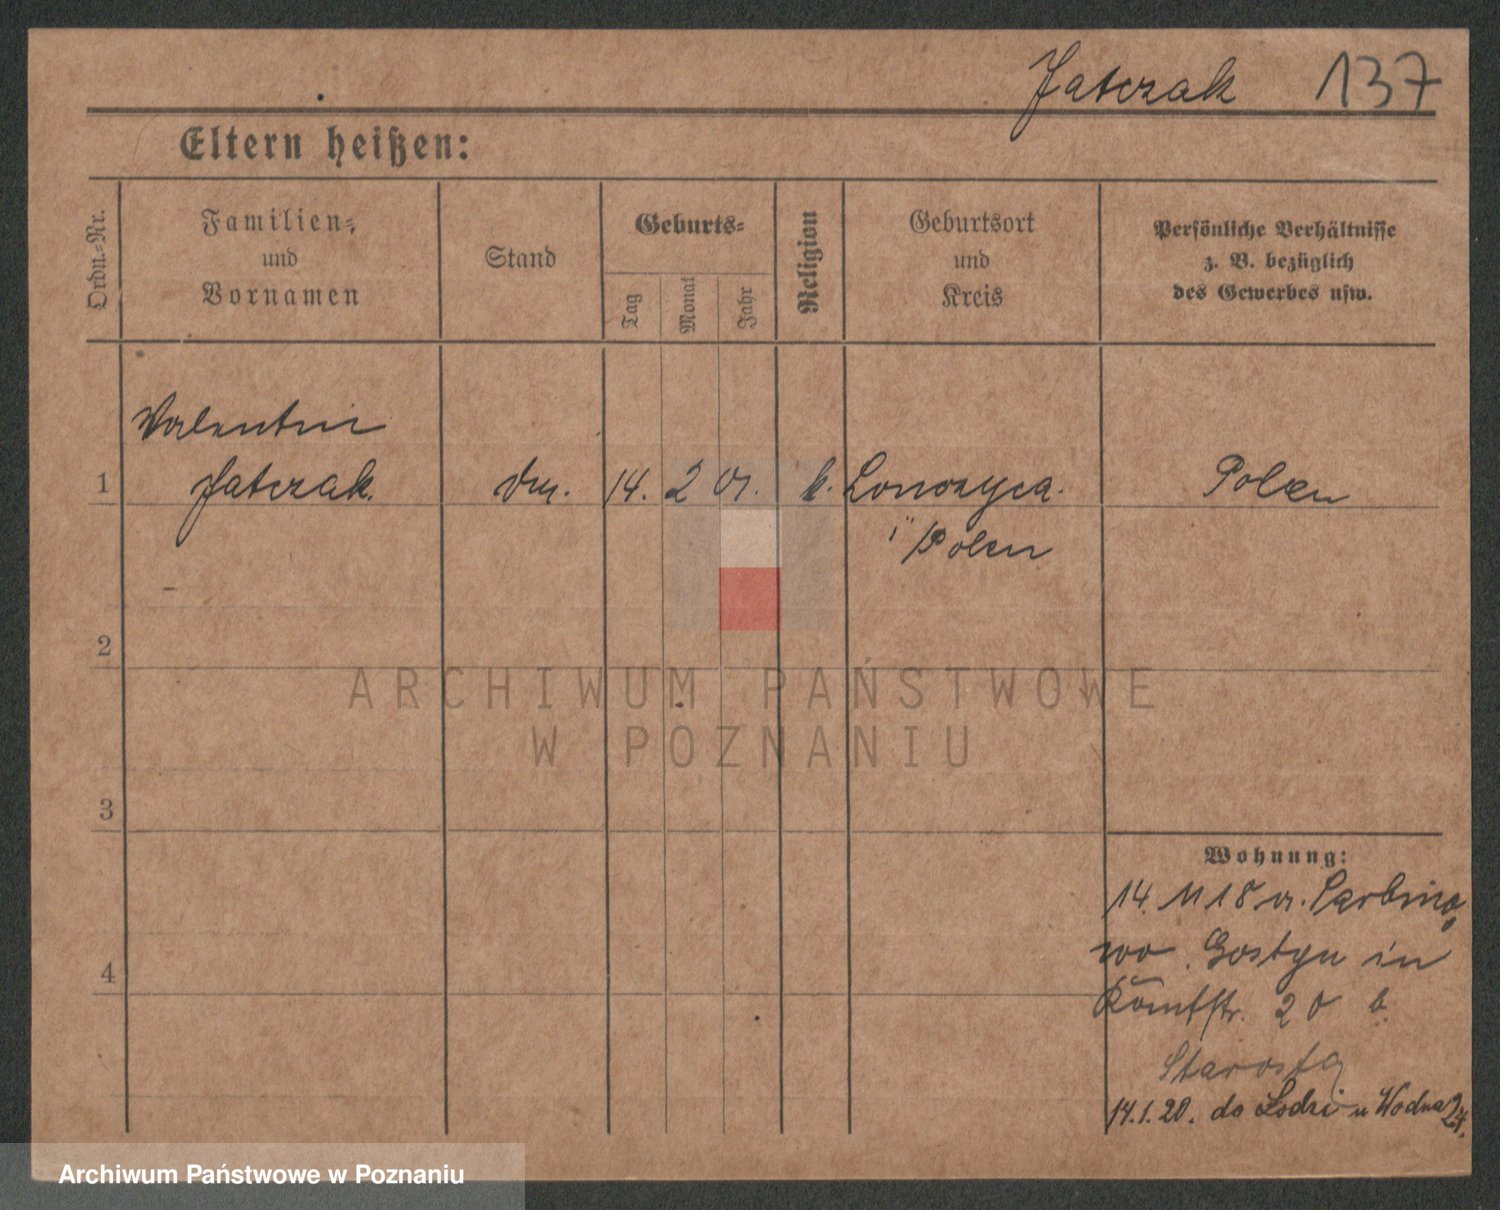 Jatczak 137
Eltern heißen:
Ordn.-Nr.
Familien-
und
Vornamen
Stand
Geburts-
Tag
Monat
Jahr
Religion
Geburtsort
und
Kreis
Persönliche Verhältnisse
z. B. bezüglich
des Gewerbes usw.
Valentin
1 Jatczak. 14. 2 01. k. Polen
i/Polen
2
ARCHIWUM PAŃSTWOWE
W POZNANIU
3
Wohnung:
14. 11 18 v.
Gostyn in
str. 20 b.
4
Starosta
14.1.20. do Lodzi u Wodna 24.
Archiwum Państwowe w Poznaniu